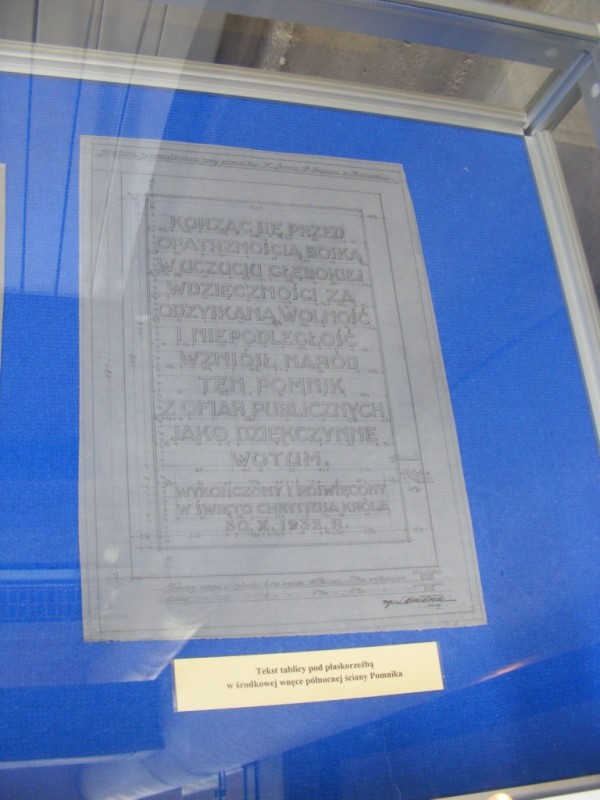 KORZĄC SIĘ PRZED
OPATRZNOŚCIĄ BOSKĄ
W UCZUCIU GŁĘBOKIEJ
WDZIĘCZNOŚCI ZA
ODZYSKANĄ WOLNOŚĆ
I NIEPODLEGŁOŚĆ
WZNIÓSŁ NARÓD
TEN POMNIK
Z OFIAR PUBLICZNYCH
JAKO DZIĘKCZYNNE
WOTUM.
WYKOŃCZONY I POŚWIĘCONY
W ŚWIĘTO CHRYSTUSA KRÓLA
30. X. 1932. R.
Tekst tablicy pod płaskorzeźbą
w środkowej wnęce północnej ściany Pomnika